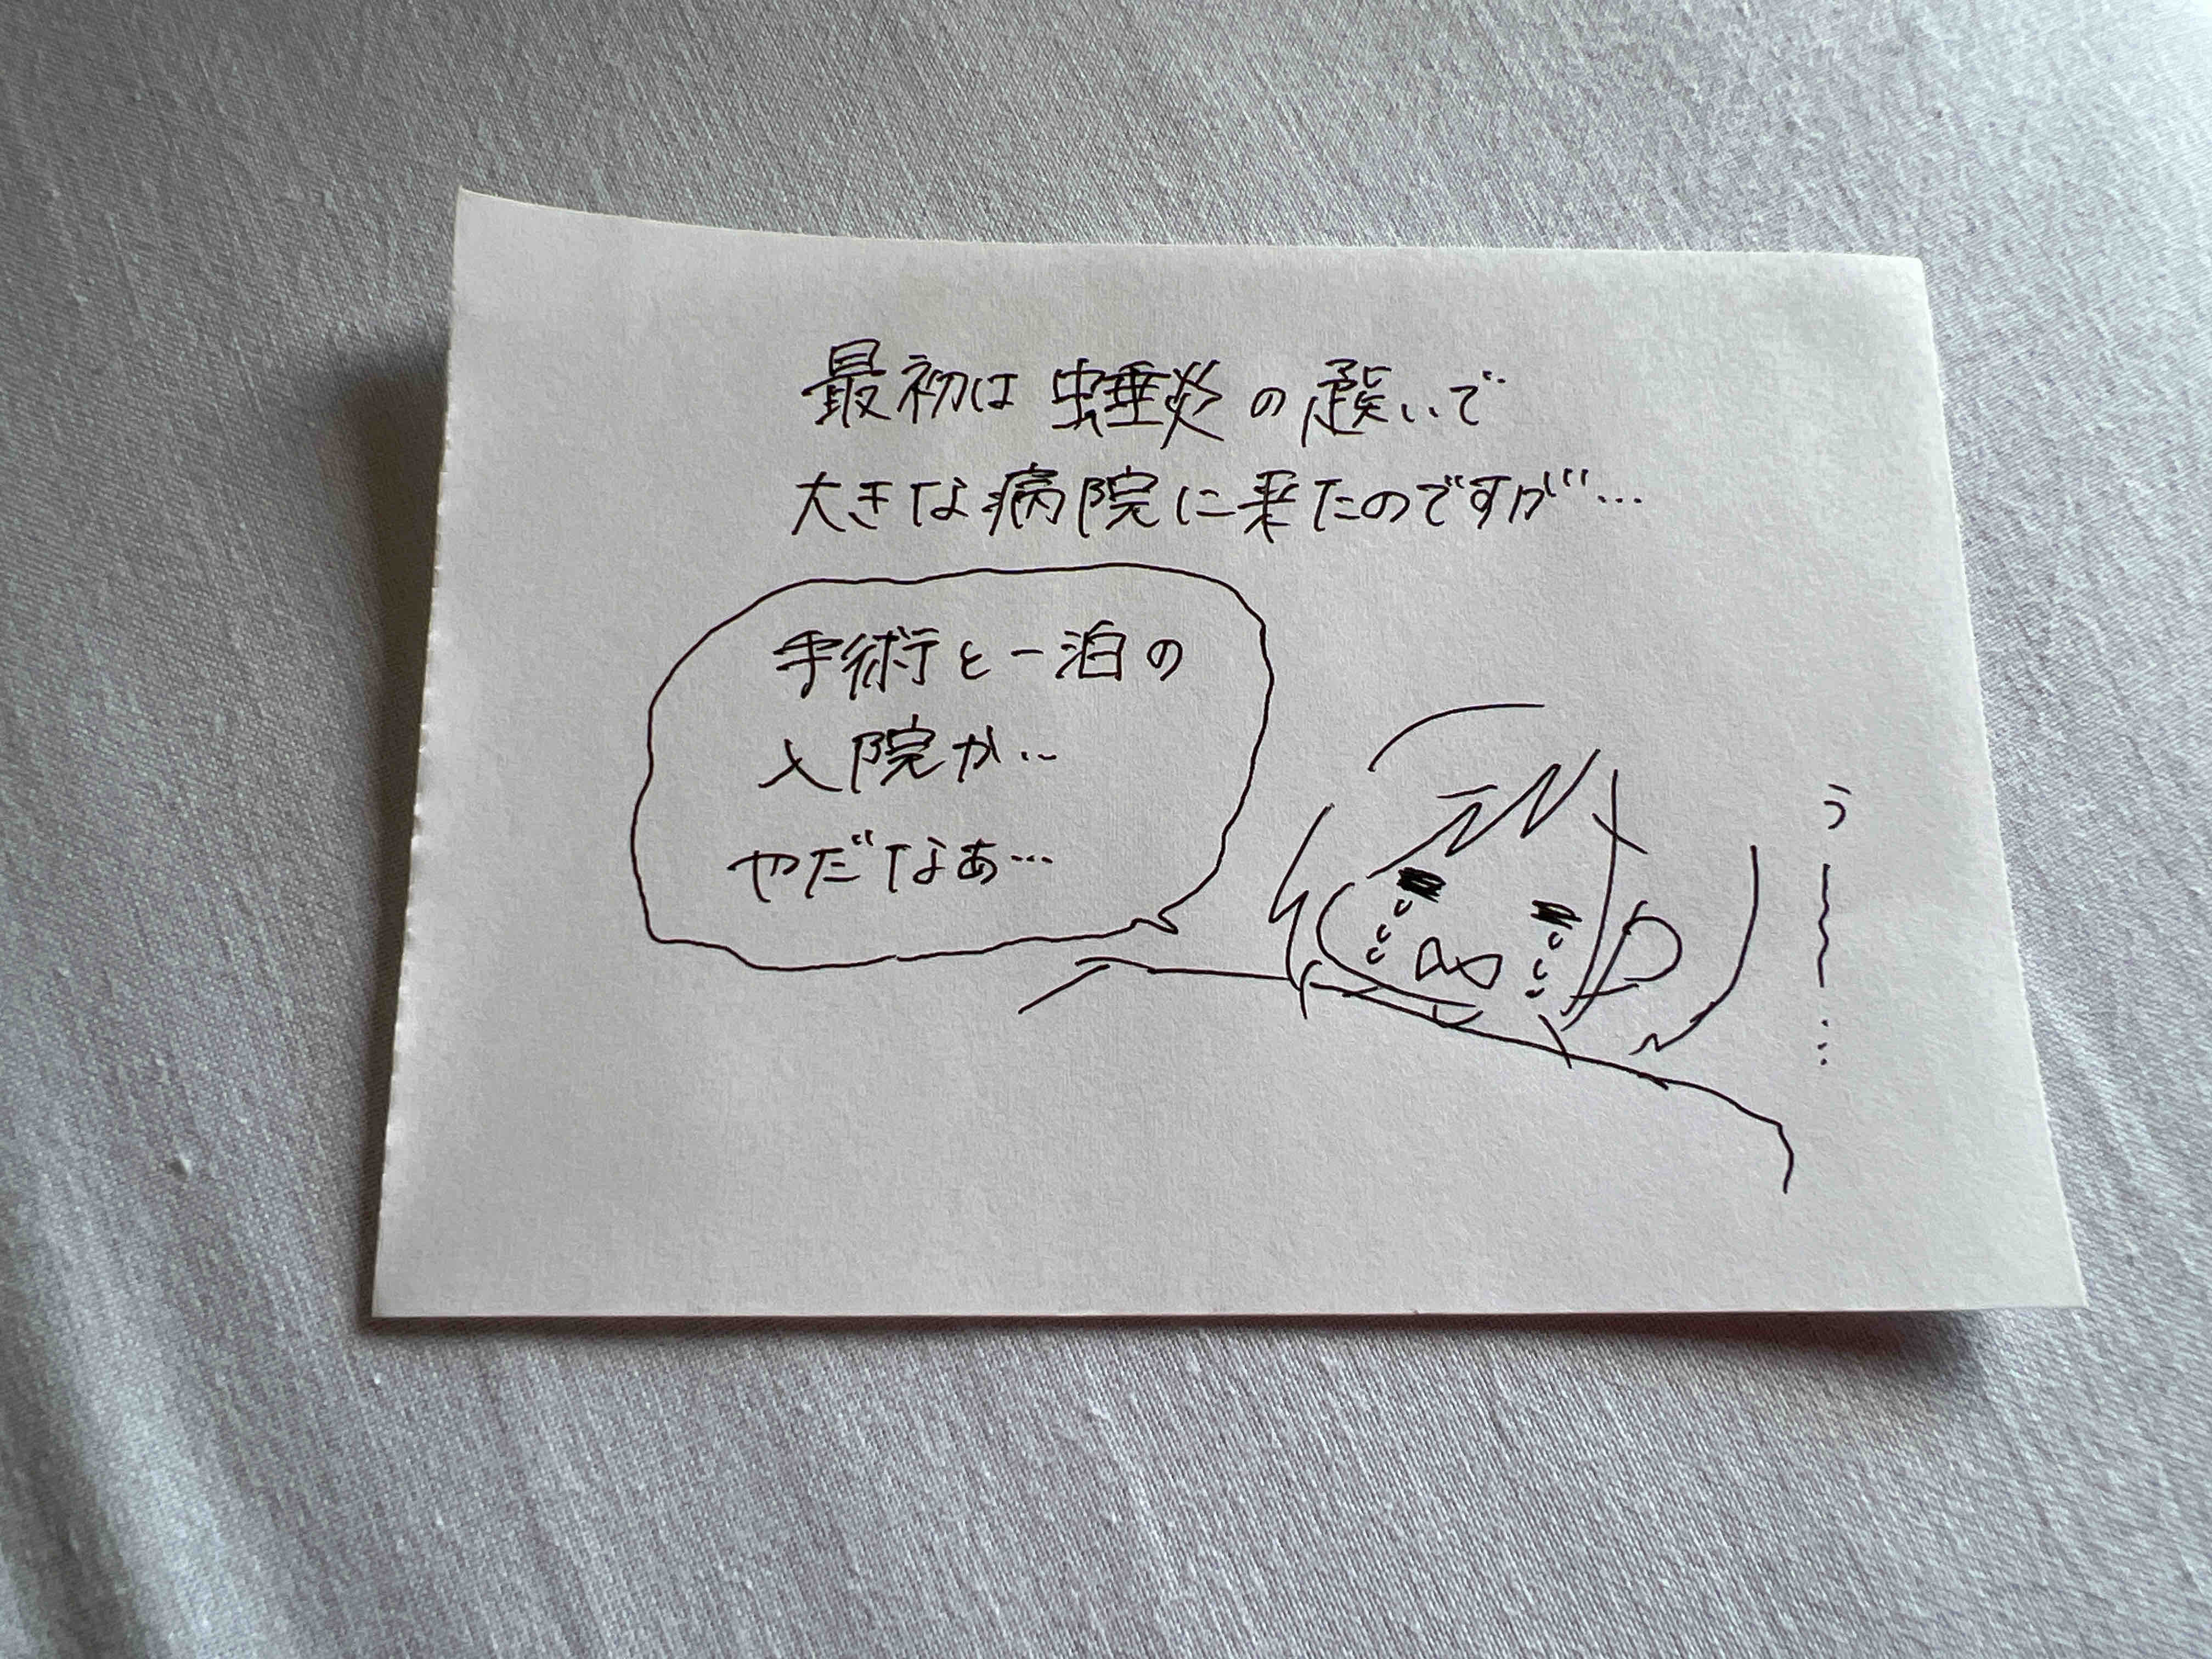 最初は虫垂炎の疑いで
大きな病院に来たのですが…
手術と一泊の
入院か…
やだなぁ…
う～…